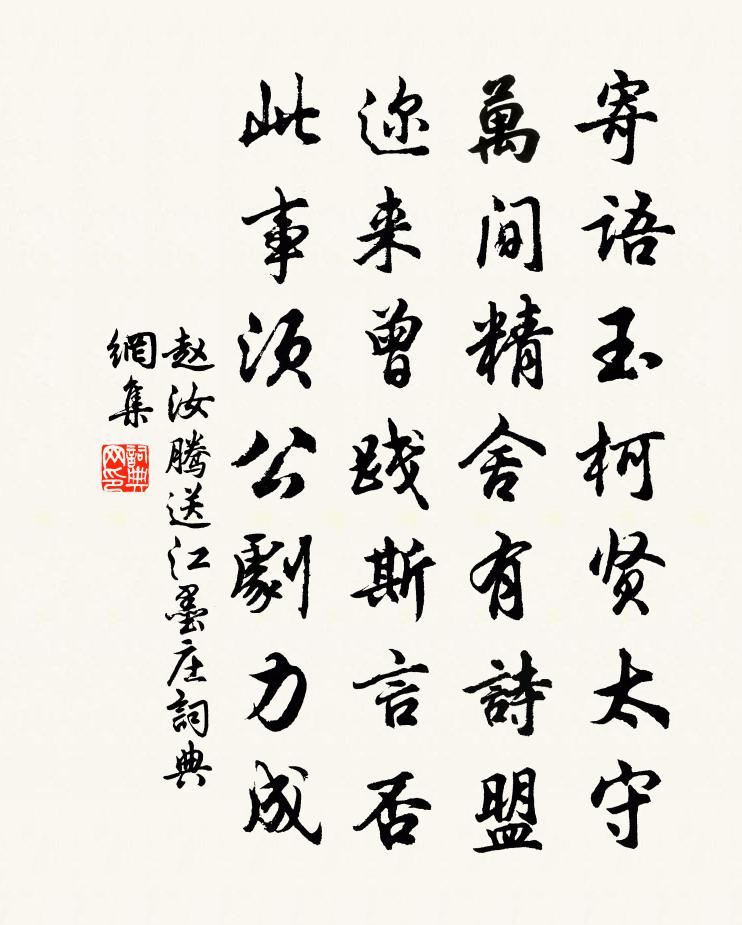 寄语玉柯贤太守
萬间精舍有詩盟
迩来曾践斯言否
此事须公劇力成
赵汝腾送江墨庄詞典
網集
詞典
网印